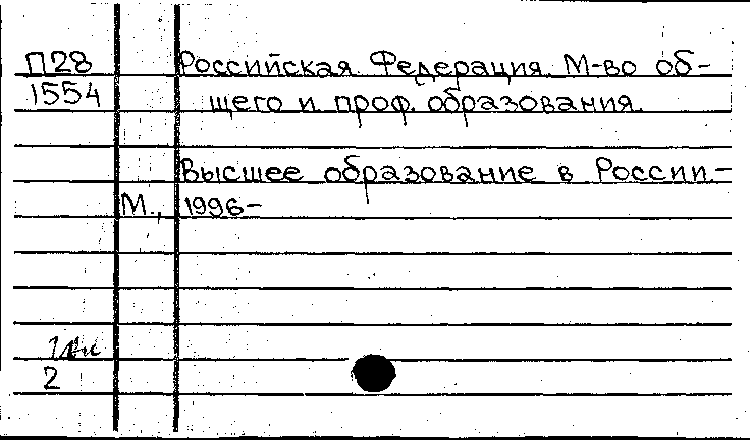 П28 Российская Федерация. М-во об-
1554 щего и проф. образования.
Высшее образование в России.-
М., 1996-
2